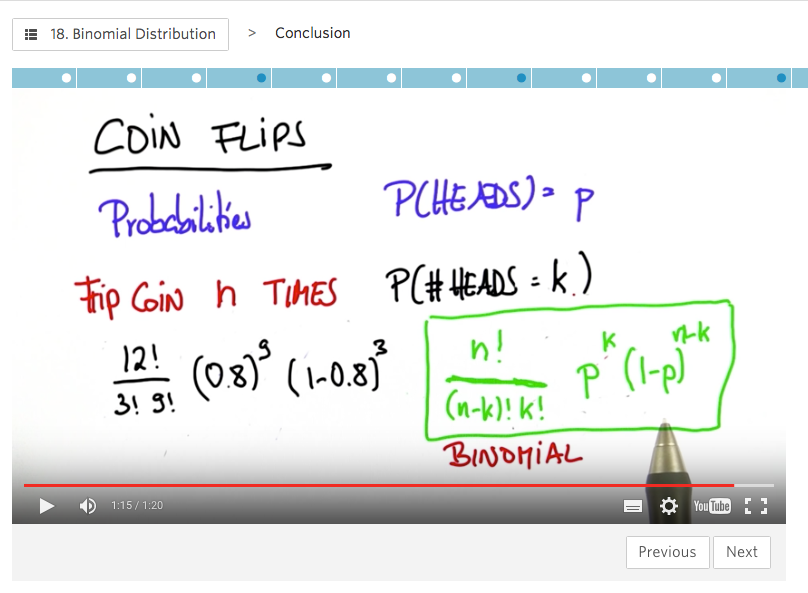 18. Binomial Distribution > Conclusion
COIN FLIPS
Probabilities
P(HEADS) = p
Flip COIN n TIMES
P(# HEADS = k.)
12!
3! 9!
(0.8)^9 (1-0.8)^3
n!
(n-k)! k!
p^k (1-p)^n-k
BINOMIAL
1:15 / 1:20
YouTube
Previous
Next